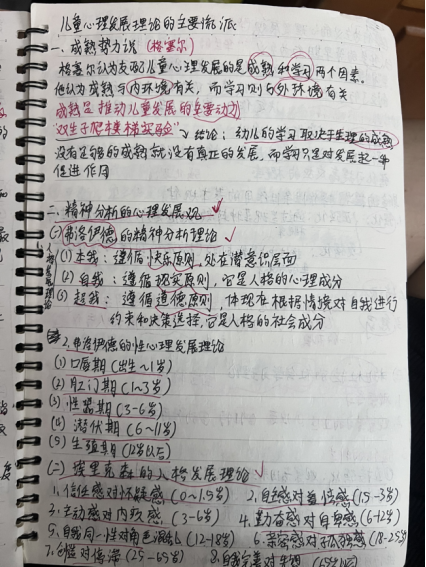 儿童心理发展理论的主要流派
一、成熟势力说（格塞尔）
格塞尔认为支配儿童心理发展的是成熟和学习两个因素。
他认为成熟与内环境有关，而学习则与外环境有关
成熟是推动儿童发展的主要动力
"双生子爬楼梯实验" 结论：幼儿的学习取决于生理的成熟
没有足够的成熟就没有真正的发展，而学习只是对发展起一种
促进作用
二、精神分析的心理发展观
(一)弗洛伊德的精神分析理论
(1) 本我：遵循快乐原则，处在潜意识层面
(2) 自我：遵循现实原则，它是人格的心理成分
(3) 超我：遵循道德原则，体现在根据情境对自我进行
约束和决策选择，它是人格的社会成分
2.弗洛伊德的性心理发展理论
(1) 口唇期（出生~1岁）
(2) 肛门期（1~3岁）
(3) 性器期（3-6岁）
(4) 潜伏期（6~11岁）
(5) 生殖期
(二)埃里克森的人格发展理论
1.信任感对怀疑感（0~1.5岁） 2.自主感对羞怯感（1.5-3岁）
3.主动感对内疚感（3-6岁） 4.勤奋感对自卑感（6-12岁）
5.自我同一性对角色混乱（12-18岁） 6.亲密感对孤独感（18-25岁
7.创造对停滞（25-65岁） 8.自我完善对